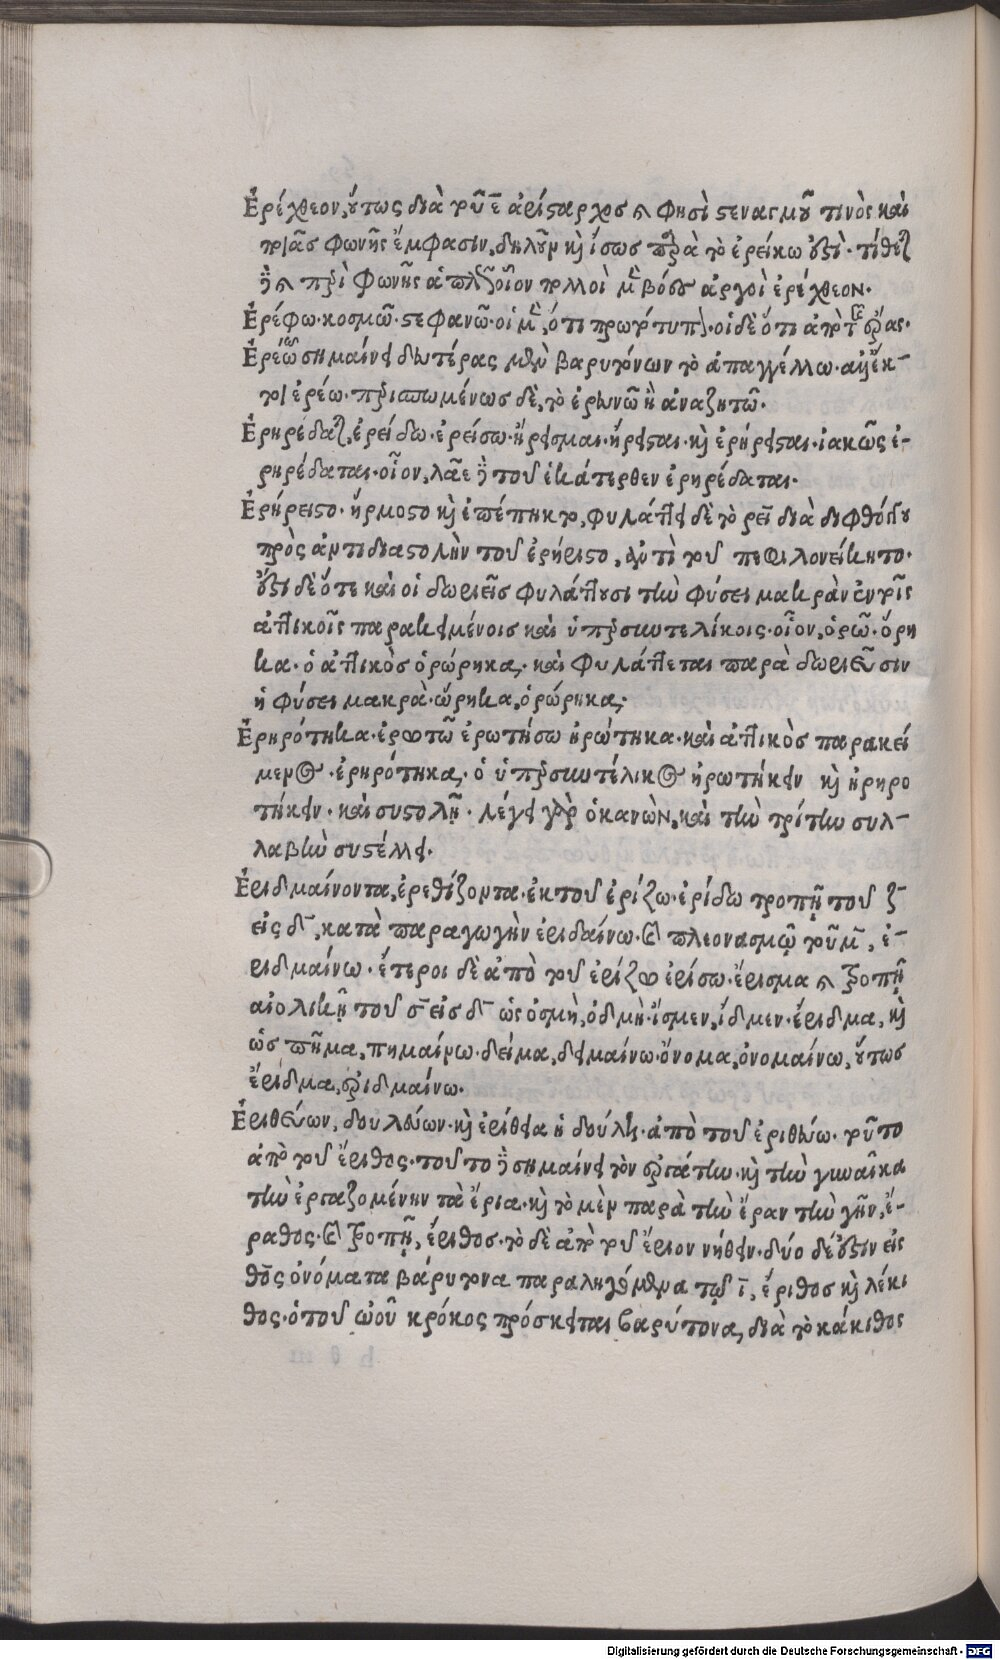 Ἐρέχθεον, οὕτως διὰ τοῦ ε̄ ἀρίσταρχος καὶ φησὶ στεναγμοῦ τινὸς καὶ
ποιᾶς φωνῆς ἔμφασιν, δηλοῦν καὶ ἴσως παρὰ τὸ ἐρείκω ἐστὶ· τίθεται
γὰρ καὶ περὶ φωνῆς οἷον πολλοὶ μὲν βόες ἀργοὶ ἐρέχθεον.
Ἐρέφω· κοσμῶ· στεφανῶ· οἱ μὲν, ὅτι πρωτότυπον· οἱ δὲ ὅτι ἀπὸ τῆς ἔρας·
Ἐρέω σημαίνει δευτέρας μὲν βαρυτόνων τὸ ἀπαγγέλλω· ἀνέκ-
το ἐρέω· περισπωμένως δὲ, τὸ ἐρευνῶ ἢ ἀναζητῶ.
Ἐρηρέδαται, ἐρείδω· ἐρείσω· ἤρεισμαι· ἤρεισται· καὶ ἐρήρεισται· ἰακῶς ἐ-
ρηρέδαται· οἷον, λᾶε γὰρ τοῦ ἑκάτερθεν ἐρηρέδαται.
Ἐρήρειστο· ἥρμοστο καὶ ἐπέπηκτο, φυλάττει δὲ τὸ ρεῖ διὰ διφθόγγου
πρὸς ἀντιδιαστολὴν τοῦ ἐρήριστο, ἀντὶ τοῦ πεφιλονείκητο·
ἔστι δὲ ὅτε καὶ οἱ δωριεῖς φυλάττουσι τὴν φύσει μακρὰν ἐν τοῖς
ἀττικοῖς παρακειμένοις καὶ ὑπερσυντελίκοις· οἷον, ὁρῶ· ὅρη
κα· ὁ ἀττικὸς ὁρώρηκα, καὶ φυλάττεται παρὰ δωριεῦσιν
ἡ φύσει μακρὰ· ὥρηκα, ὁρώρηκα,·
Ἐρηρότηκα· ἐρωτῶ ἐρωτήσω ἠρώτηκα· καὶ ἀττικὸς παρακεί
μενος· ἐρηρότηκα, ὁ ὑπερσυντέλικος ἠρωτήκειν καὶ ἠρηρο
τήκειν· καὶ συστολῇ· λέγει γὰρ ὁ κανὼν, καὶ τὴν τρίτην συλ-
λαβὴν συστέλλει.
Ἐριδμαίνοντα, ἐρεθίζοντα· ἐκ τοῦ ἐρίζω· ἐρίδω τροπῇ τοῦ ζ̄
εἰς δ̄, κατὰ παραγωγὴν ἐριδαίνω· καὶ πλεονασμῷ τοῦ μ̄, ἐ-
ριδμαίνω· ἕτεροι δὲ ἀπὸ τοῦ ἐρίζω ἐρίσω· ἔρισμα καὶ τροπῇ
αἰολικῇ τοῦ σ̄ εἰς δ̄ ὡς ὀσμὴ, ὀδμὴ· ἴσμεν, ἴδμεν· ἔριδμα, καὶ
ὡς πῆμα, πημαίνω· δεῖμα, δειμαίνω· ὄνομα, ὀνομαίνω, οὕτως
ἔριδμα, ἐριδμαίνω.
Ἐριθεύων, δουλεύων· καὶ ἐρίθεια ἡ δούλη· ἀπὸ τοῦ ἐριθεύω· τοῦτο
ἀπὸ τοῦ ἔριθος· τοῦτο γὰρ σημαίνει τὸν ἐργάτην· καὶ τὴν γυναῖκα
τὴν ἐργαζομένην τὰ ἔρια· καὶ τὸ μὲν παρὰ τὴν ἔραν τὴν γῆν, ἔ-
ραθος· καὶ τροπῇ, ἔριθος· τὸ δὲ ἀπὸ τοῦ ἔριον νήθειν· δύο δέ ἐστιν εἰς
θος ὀνόματα βάρυτονα παραληγόμενα τῷ ῑ, ἔριθος καὶ λέκι
θος· ὁ τοῦ ὠοῦ κρόκος πρόσκειται βαρύτονα, διὰ τὸ κάκιθος
Digitalisierung gefördert durch die Deutsche Forschungsgemeinschaft - DFG